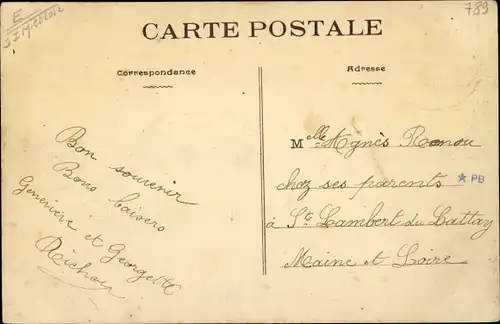 E
789
CARTE POSTALE
Correspondance
Adresse
Bon souvenir
Bons baisers
Geneviève et Georgette
Melle Agnès Renou
chez ses parents
★ PB
à St Lambert du Lattay
Maine et Loire